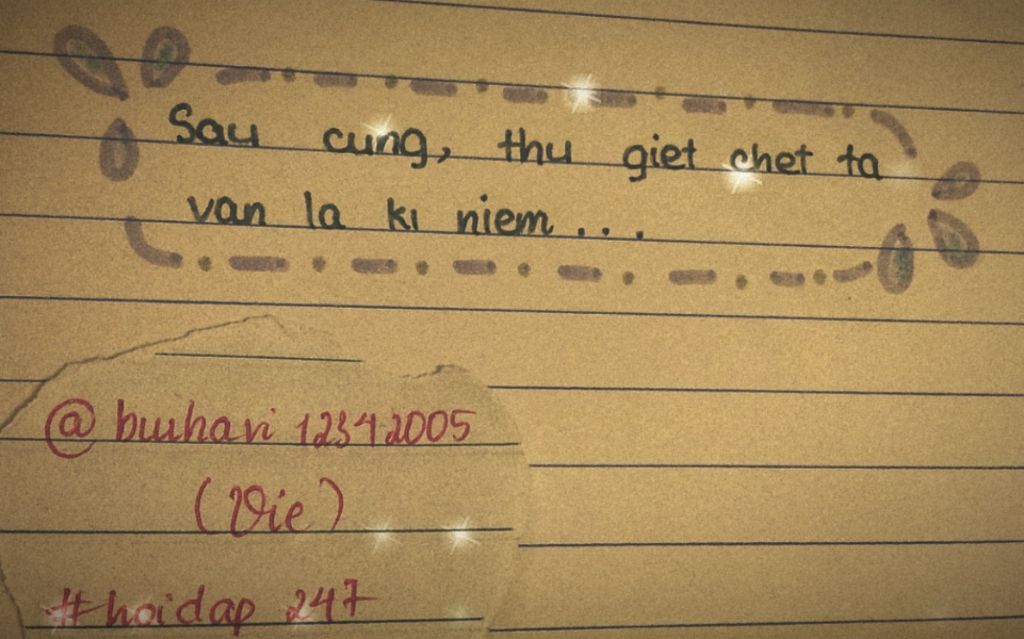 Sau cung, thu giet chet ta
van la ki niem...
@buihavi12342005
(Vie)
#hoidap 247